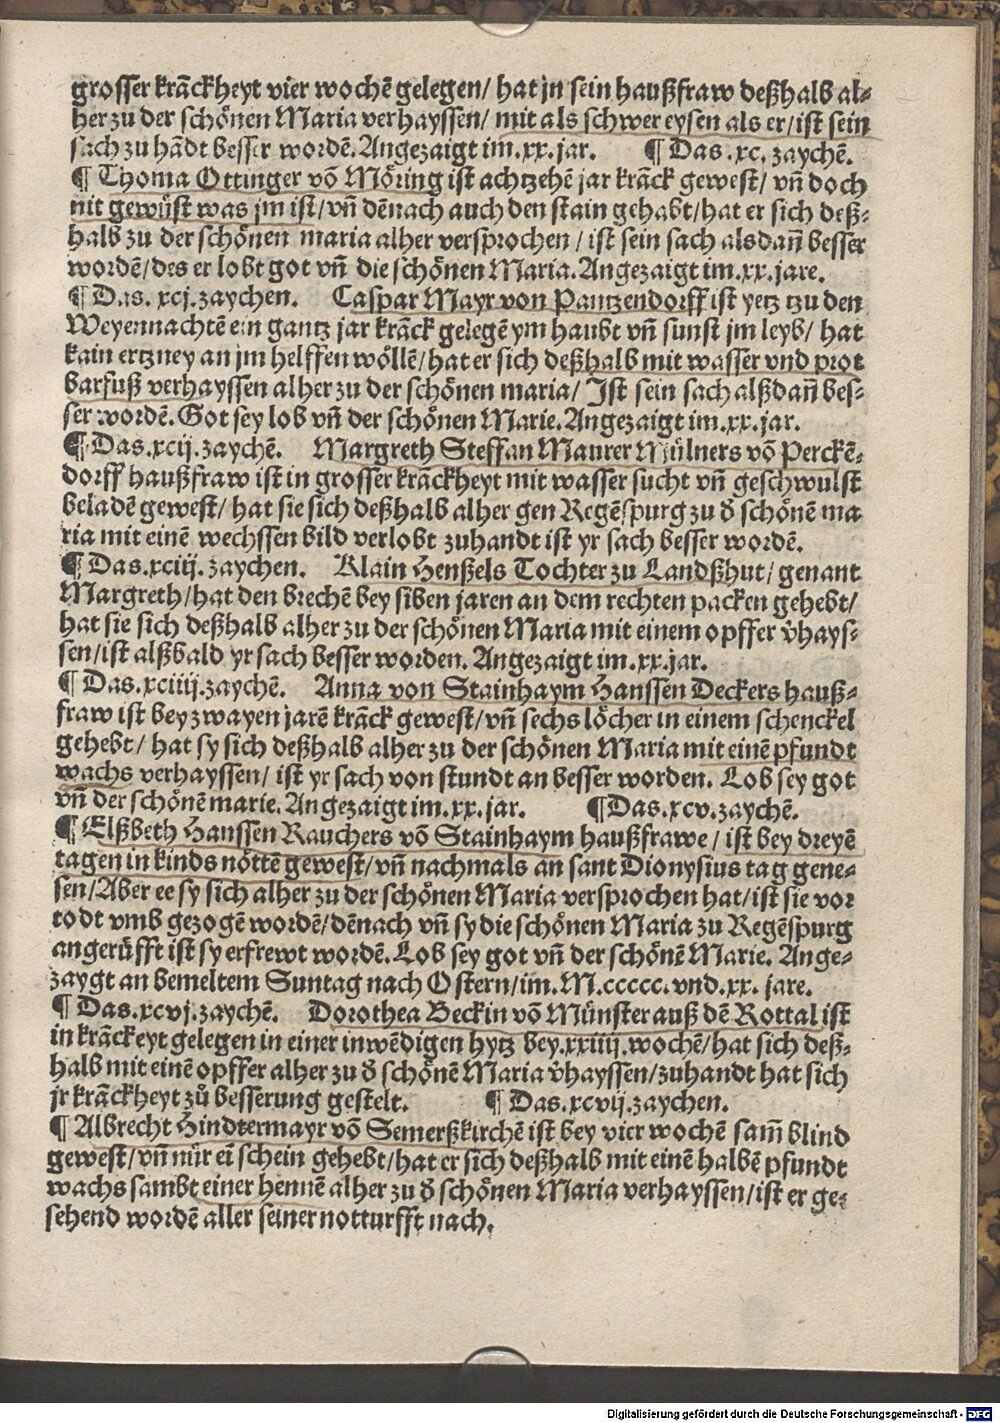 grosser krãckheyt vier wochẽ gelegen/ hat jn sein haußfraw deßhalb al⸗
her zu der schönen Maria verhayssen/ mit als schwer eysen als er/ ist sein
sach zu hãdt besser wordẽ. Angezaigt im.xx.jar. ¶ Das.xc.zaychẽ.
¶ Thoma Ottinger võ Möring ist achtzehẽ jar krãck gewest/ vñ doch
nit gewüst was jm ist/ vñ dẽnach auch den stain gehabt/ hat er sich deß⸗
halb zu der schönen maria alher versprochen/ ist sein sach alsdañ besser
wordẽ/ des er lobt got vñ die schönen Maria. Angezaigt im.xx.jare.
¶ Das.xcj.zaychen. Caspar Mayr von Pantzendorff ist yetz tzu den
Weyennachtẽ ein gantz jar krãck gelegẽ ym haubt vñ sunst jm leyb/ hat
kain ertzney an jm helffen wöllẽ/ hat er sich deßhalb mit wasser vnd prot
barfuß verhayssen alher zu der schönen maria/ Ist sein sach alßdañ bes⸗
ser wordẽ. Got sey lob vñ der schönen Marie. Angezaigt im.xx.jar.
¶ Das.xcij.zaychẽ. Margreth Steffan Maurer Mülners võ Perckẽ⸗
dorff haußfraw ist in grosser krãckheyt mit wasser sucht vñ geschwulst
beladẽ gewest/ hat sie sich deßhalb alher gen Regẽspurg zu d̓ schönẽ ma
ria mit einẽ wechssen bild verlobt zuhandt ist yr sach besser wordẽ.
¶ Das.xciij.zaychen. Klain Henßels Tochter zu Landßhut/ genant
Margreth/ hat den brechẽ bey siben jaren an dem rechten packen gehebt/
hat sie sich deßhalb alher zu der schönen Maria mit einem opffer v̓hays⸗
sen/ ist alßbald yr sach besser worden. Angezaigt im.xx.jar.
¶ Das.xciiij.zaychẽ. Anna von Stainhaym Hanssen Deckers hauß⸗
fraw ist bey zwayen jarẽ krãck gewest/ vñ sechs löcher in einem schenckel
gehebt/ hat sy sich deßhalb alher zu der schönen Maria mit einẽ pfundt
wachs verhayssen/ ist yr sach von stundt an besser worden. Lob sey got
vñ der schönẽ marie. Angezaigt im.xx.jar. ¶ Das.xcv.zaychẽ.
¶ Elßbeth Hanssen Rauchers võ Stainhaym haußfrawe/ ist bey dreyẽ
tagen in kinds nöttẽ gewest/ vñ nachmals an sant Dionysius tag gene⸗
sen/ Aber ee sy sich alher zu der schönen Maria versprochen hat/ ist sie vor
todt vmb gezogẽ wordẽ/ dẽnach vñ sy die schönen Maria zu Regẽspurg
angerüfft ist sy erfrewt wordẽ. Lob sey got vñ der schönẽ Marie. Ange⸗
zaygt an bemeltem Suntag nach Ostern/ im.M.ccccc.vnd.xx.jare.
¶ Das.xcvj.zaychẽ. Dorothea Beckin võ Münster auß dẽ Rottal ist
in krãckeyt gelegen in einer inwẽdigen hytz bey.xxiiij.wochẽ/ hat sich deß⸗
halb mit einẽ opffer alher zu d̓ schönẽ Maria v̓hayssen/ zuhandt hat sich
jr krãckheyt zů besserung gestelt. ¶ Das.xcvij.zaychen.
¶ Albrecht Hindtermayr võ Semerßkirchẽ ist bey vier wochẽ sam̃ blind
gewest/ vñ nür eĩ schein gehebt/ hat er sich deßhalb mit einẽ halbẽ pfundt
wachs sambt einer hennẽ alher zu d̓ schönen Maria verhayssen/ ist er ge⸗
sehend wordẽ aller seiner notturfft nach.
Digitalisierung gefördert durch die Deutsche Forschungsgemeinschaft - DFG